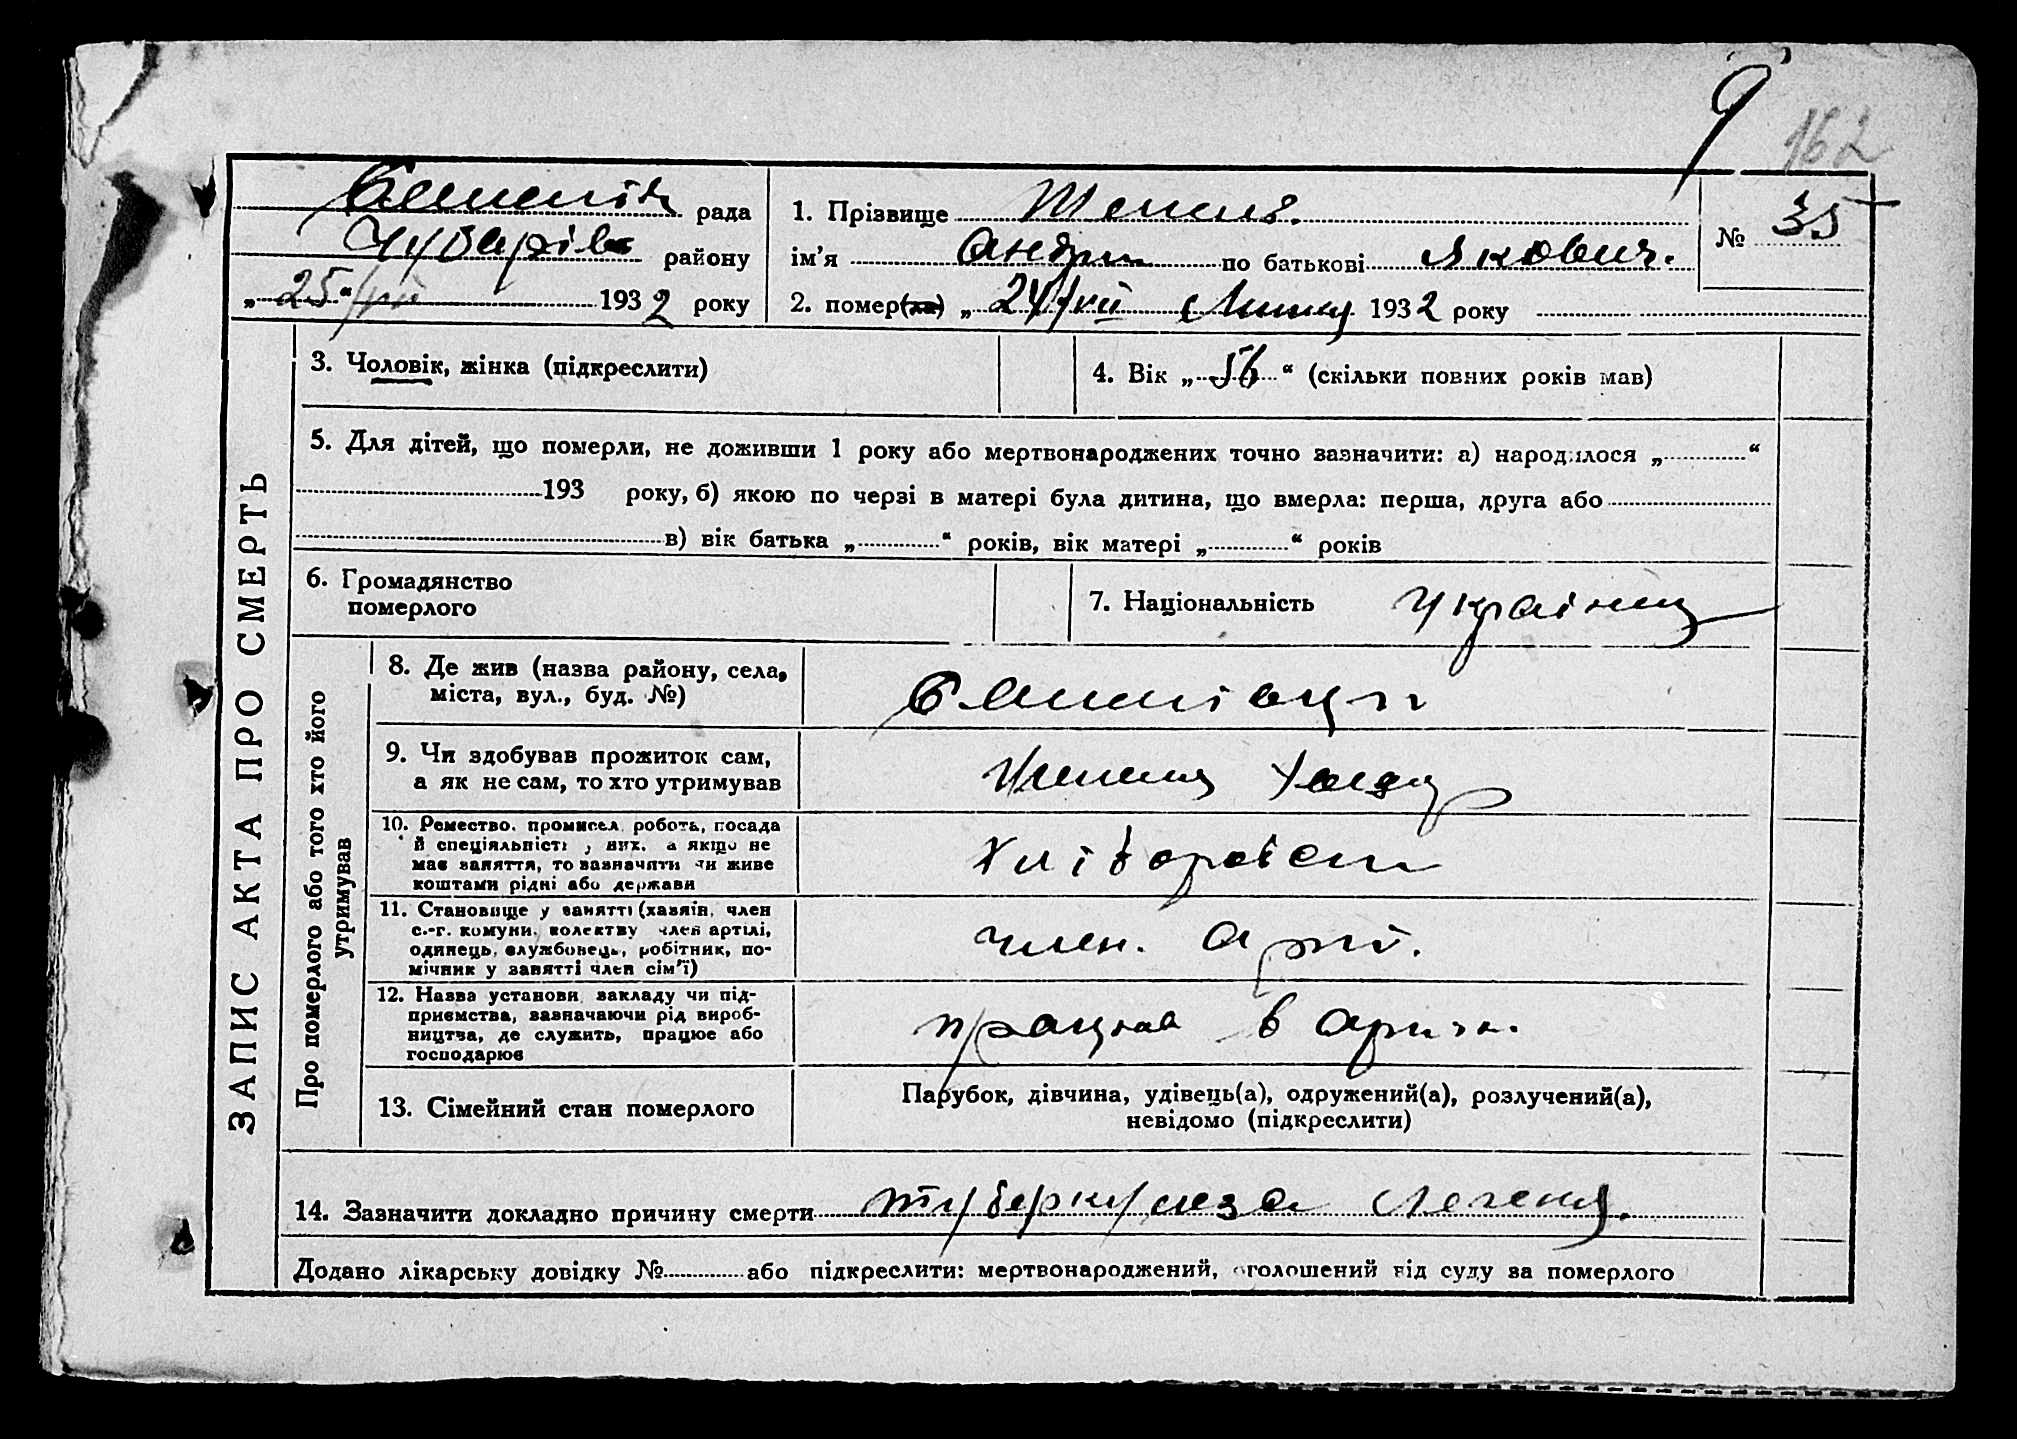 9
162
рада
Чубарів району
„25“/VII 1932 року
1. Прізвище
ім’я Андрій по батькові Якович.
№ 35
2. помер(ла) „24/VII Липця 1932 року
ЗАПИС АКТА ПРО СМЕРТЬ
3. Чоловік, жінка (підкреслити)
4. Вік „56“ (скільки повних років мав)
5. Для дітей, що померли, не доживши 1 року або мертвонароджених точно зазначити: а) народилося „ “
193 року, б) якою по черзі в матері була дитина, що вмерла: перша, друга або
в) вік батька „ “ років, вік матері „ “ років
6. Громадянство
померлого
7. Національність Українец
Про померлого або того хто його
утримував
8. Де жив (назва району, села,
міста, вул., буд. №)
9. Чи здобував прожиток сам,
а як не сам, то хто утримував
10. Ремество, промисел, робота, посада
й спеціяльність у них, а якщо не
має заняття, то зазначити чи живе
коштами рідні або держави
Хлібороб
11. Становище у занятті (хазяїн, член
с.-г. комуни, колективу член артілі,
одинець, службовець, робітник, по-
мічник у занятті член сім’ї)
член. Арті.
12. Назва установи, закладу чи під-
приємства, зазначаючи рід вироб-
ництва, де служить, працює або
господарює
працював в артіл.
13. Сімейний стан померлого
Парубок, дівчина, удівець(а), одружений(а), розлучений(а),
невідомо (підкреслити)
14. Зазначити докладно причину смерти туберкульоза легень.
Додано лікарську довідку № або підкреслити: мертвонароджений, оголошений від суду за померлого